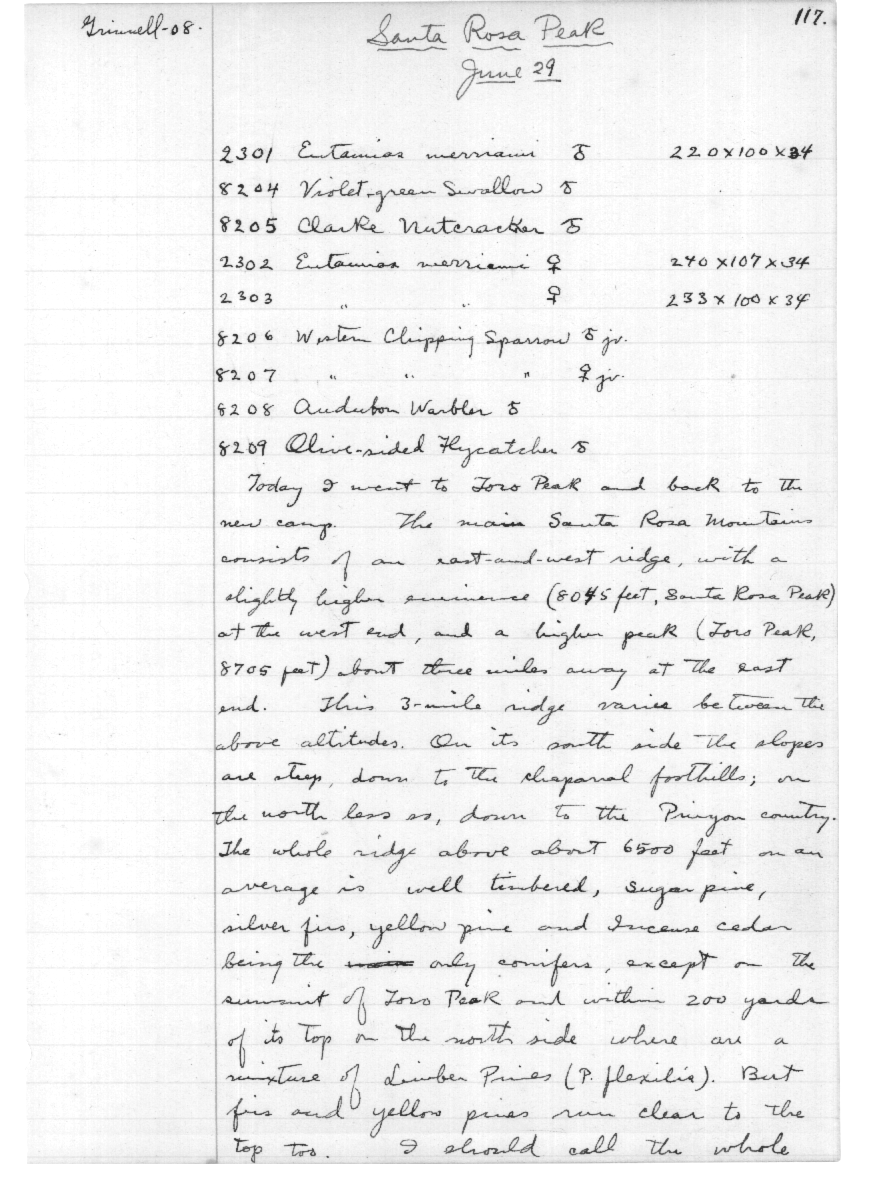 Grinnell-08.
117.
Santa Rosa Peak
June 29
2301 Eutamias merriami ♂ 220 x 100 x 34
8204 Violet-green Swallow ♂
8205 Clarke Nutcracker ♂
2302 Eutamias merriami ♀ 240 x 107 x 34
2303 " " ♀ 233 x 100 x 34
8206 Western Chipping Sparrow ♂ jv.
8207 " " " ♀ jv.
8208 Audubon Warbler ♂
8209 Olive-sided Flycatcher ♂
Today I went to Toro Peak and back to the
new camp. The main Santa Rosa Mountains
consists of an east-and-west ridge, with a
slightly higher eminence (8045 feet, Santa Rosa Peak)
at the west end, and a higher peak (Toro Peak,
8705 feet) about three miles away at the east
end. This 3-mile ridge varies between the
above altitudes. On its south side the slopes
are steep, down to the chaparral foothills; on
the north less so, down to the Pinyon country.
The whole ridge above about 6500 feet on an
average is well timbered, sugar pine,
silver firs, yellow pine and Incense cedar
being the main only conifers, except on the
summit of Toro Peak and within 200 yards
of its top on the north side where are a
mixture of Limber Pines (P. flexilis). But
firs and yellow pines run clear to the
top too. I should call the whole